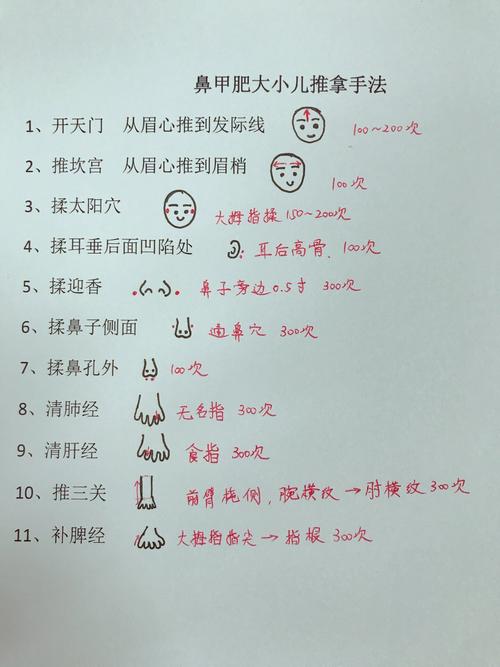 鼻甲肥大小儿推拿手法
1、开天门 从眉心推到发际线 100~200次
2、推坎宫 从眉心推到眉梢 100次
3、揉太阳穴 大拇指揉150~200次
4、揉耳垂后面凹陷处 耳后高骨、100次
5、揉迎香 鼻子旁边0.5寸 300次
6、揉鼻子侧面 通鼻穴 300次
7、揉鼻孔外 100次
8、清肺经 无名指 300次
9、清肝经 食指 300次
10、推三关 前臂桡侧，腕横纹→肘横纹300次
11、补脾经 大拇指指尖→指根 300次